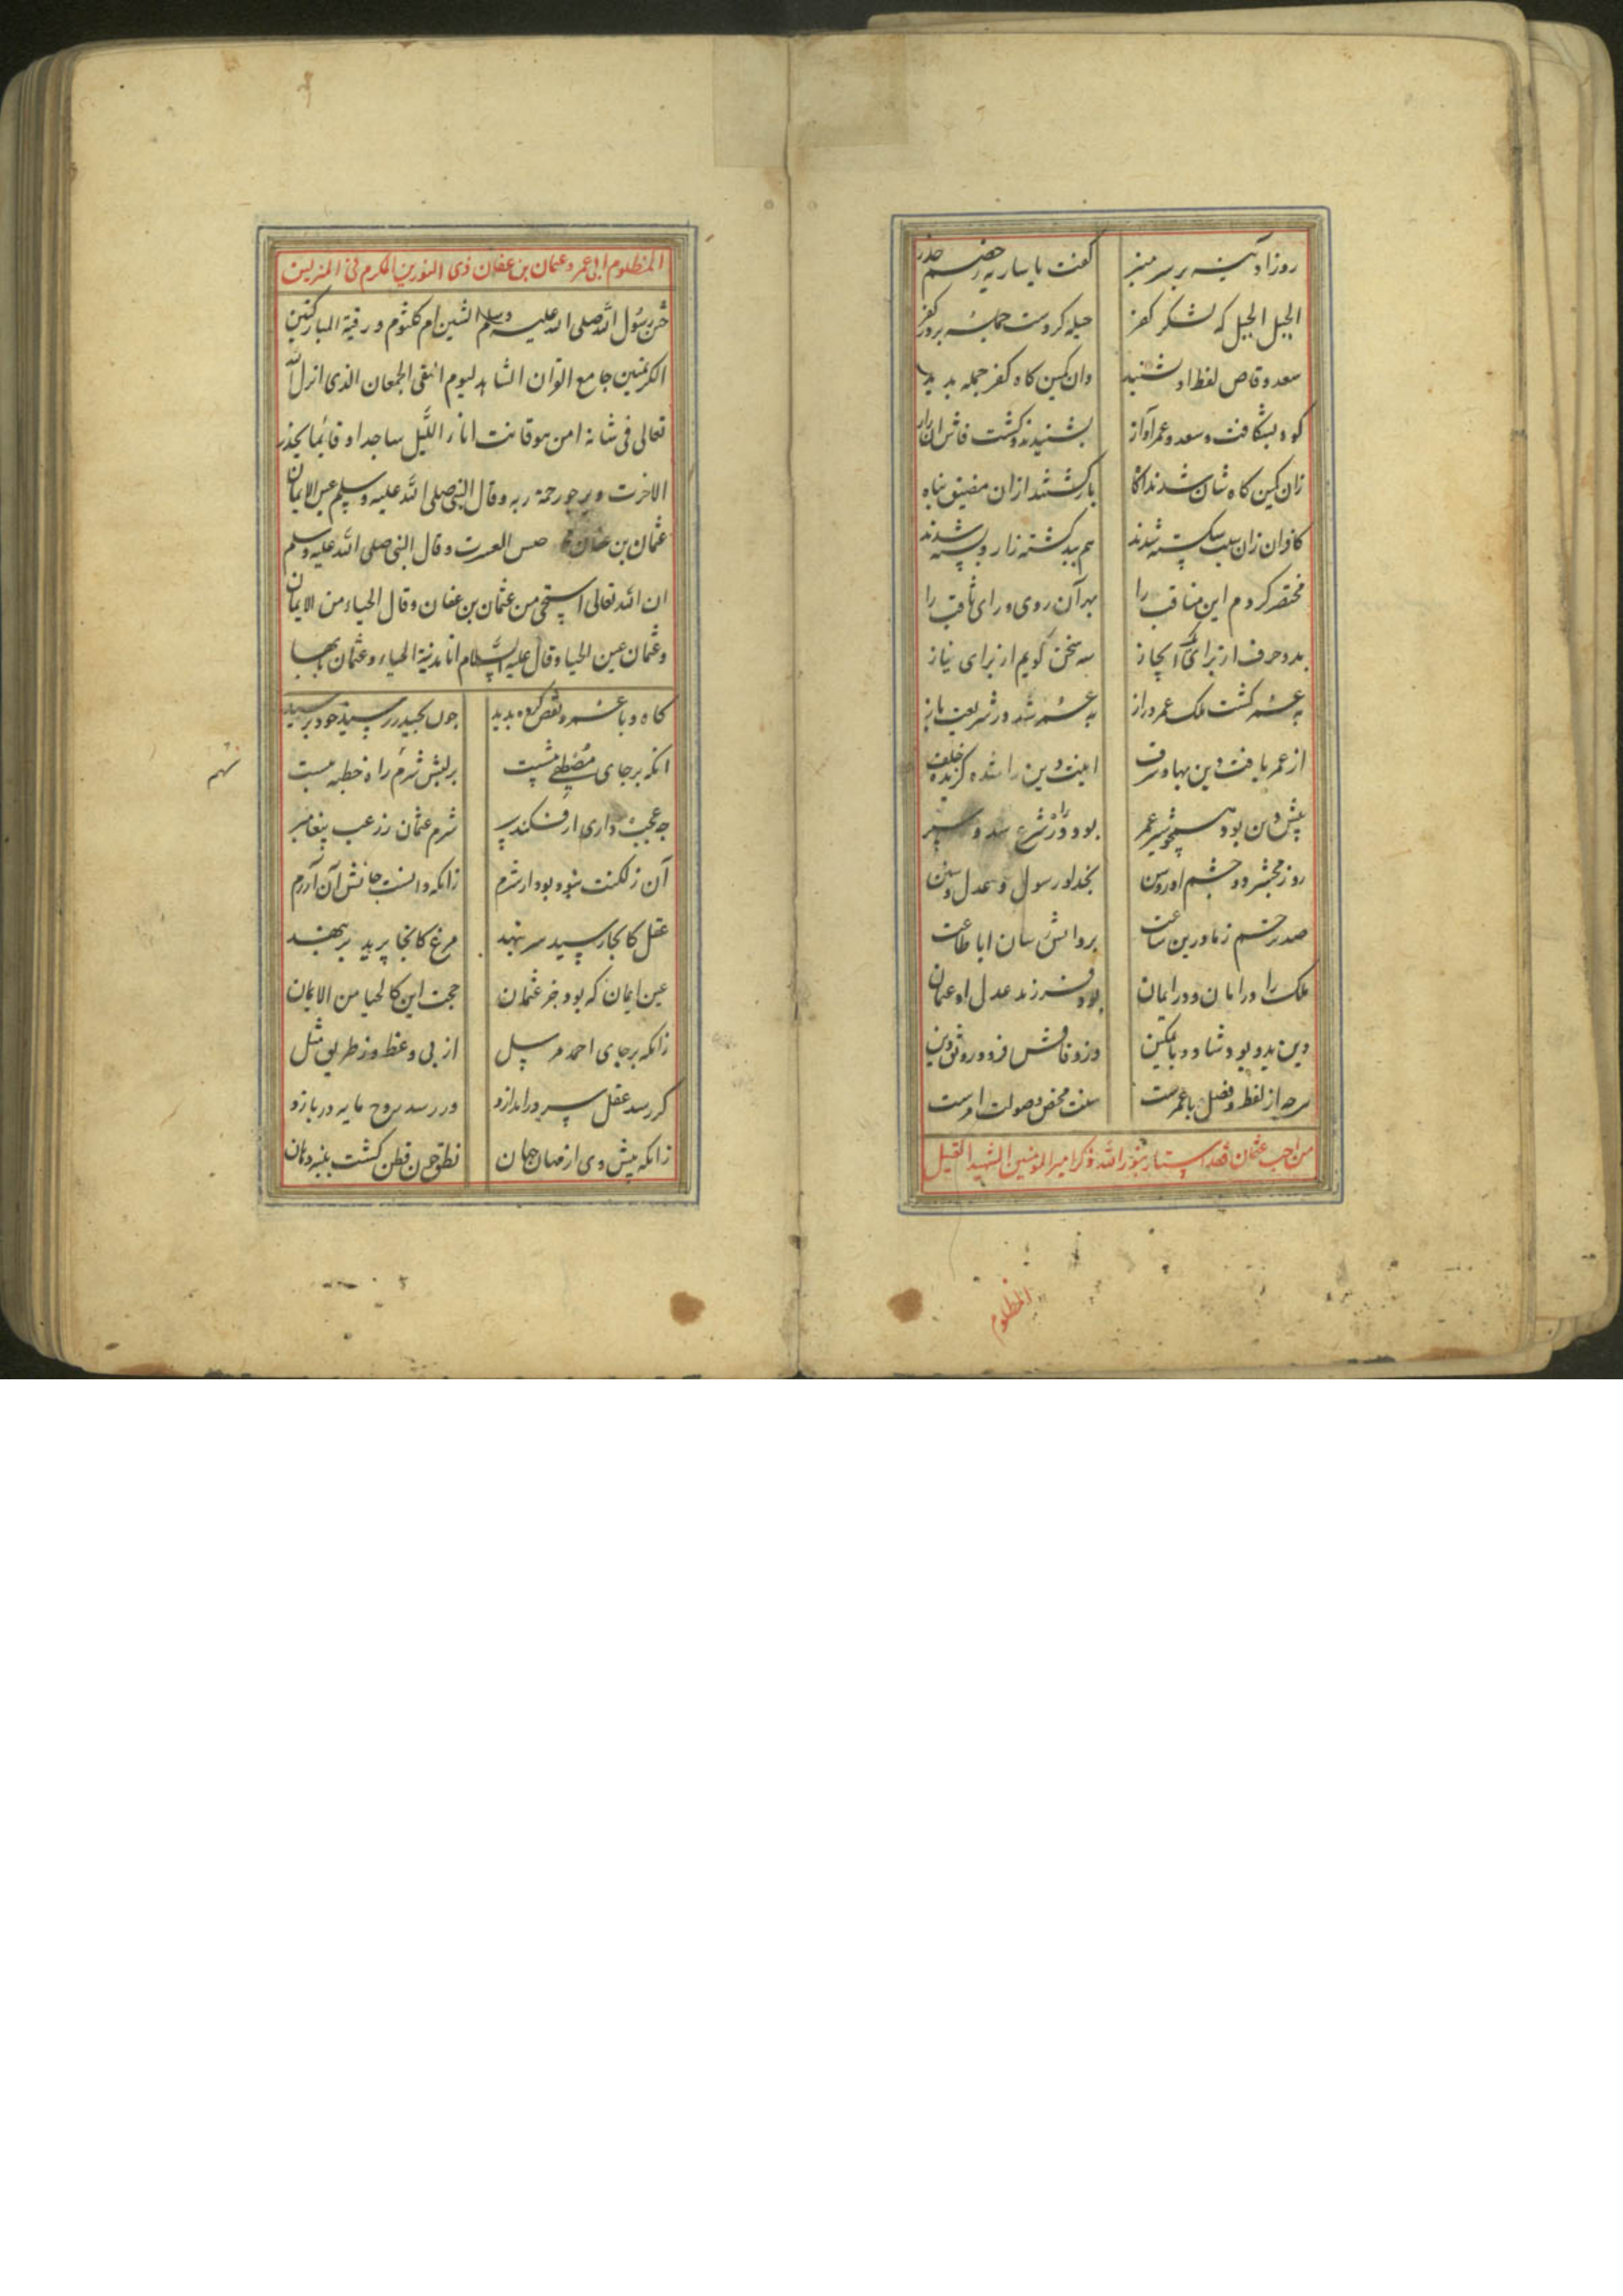 روز آدینه بر سر منبر گفت یا ساریه ز خصم حذر
الجبل الجبل که لشکر کفر حیله کردست جمله بر در کفر
سعد وقاص لفظ او شنید وان کمین کاه کفر جمله بدید
کوه بشکافت و سعد و عمر آواز بشنیدند و کشت فاش آن راز
زان کمین کاه شان شدند آکاه بازکشتند از آن مضیق پناه
کافران زان سبب شکسته شدند هم بید کشته زار و بسته شدند
مختصر کردم این مناقب را مهر آن روی و رای ثاقب را
بدو حرف از برای ایجاز سه سخن کویم از برای نیاز
به عمر کشت ملک عمر دراز به عمر شد در شریعت باز
از عمر یافت دین بها و شرف امت و دین را شده کزیده خلف
پیش دین بود همچو شیر عمر بود در راه شرع سد و سپر
روز محشر دو چشم او روشن بخدا و رسول و عدل و سنن
صد رحم زما درین ساعت بر وانش سان ابا طاعت
ملک را در امان و در ایمان بود فرزند عدل او عمان
دین بدو بود شاد و با تمکین وز وفاتش فزود رونق دین
هرچه از لفظ و فضل با عمرست سنت محض و صولت امرست
من احب عثمان فقد استنار بنور الله ذکر امیر المومنین الشهید القتیل
المظلوم
المظلوم ابی عمرو عثمان بن عفان ذی النورین المکرم فی المنزلین
ختن رسول الله صلی الله علیه وسلم ام کلثوم و رقیة المبارکتین
الکریمتین جامع القران الشاهد لیوم التقی الجمعان الذی انزل الله
تعالی فی شانه امن هو قانت اناء اللیل ساجدا و قائما یحذر
الاخرت و یرجو رحمة ربه و قال النبی صلی الله علیه وسلم عین الایمان
عثمان بن عفان العسرت و قال النبی صلی الله علیه وسلم
ان الله تعالی استحیی من عثمان بن عفان و قال الحیاء من الایمان
و عثمان عین الحیا و قال علیه السلام انا مدینة الحیاء و عثمان بابها
کاه و با عمر و نقص بدید چون بحیدر رسید خود برسید
آنکه بر جای مصطفی بنشست بر لبش شرم راه خطبه ببست
چه عجب داری ار فکند سپر شرم عثمان ز رعب پیغامبر
آن ز لکنت نبود بود از شرم زانکه دانست جانش آن آزرم
عقل کانجا رسید سر بنهد مرغ کانجا پرید پر بنهد
عین ایمان که بود جز عثمان حجت این کالحیا من الایمان
زانکه بر جای احمد مرسل از پی وعظ و ز طریق مثل
کر رسد عقل سر در اندازد ور رسد روح مایه دربازد
زانکه پیش وی از میان جهان نطق چون قطن کشت پنبه دهان